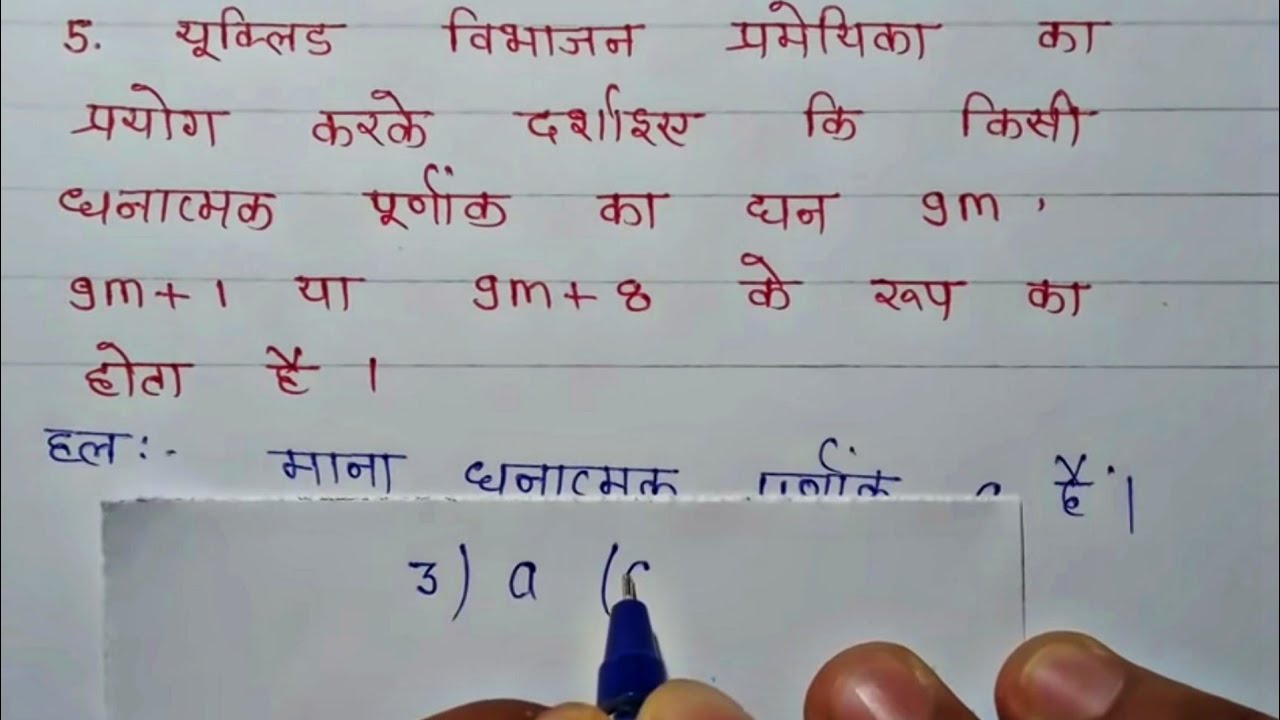 5. यूक्लिड विभाजन प्रमेयिका का
प्रयोग करके दर्शाइए कि किसी
धनात्मक पूर्णांक का घन 9m,
9m+1 या 9m+8 के रूप का
होता है ।
हल :- माना धनात्मक पूर्णांक a है ।
3) a (